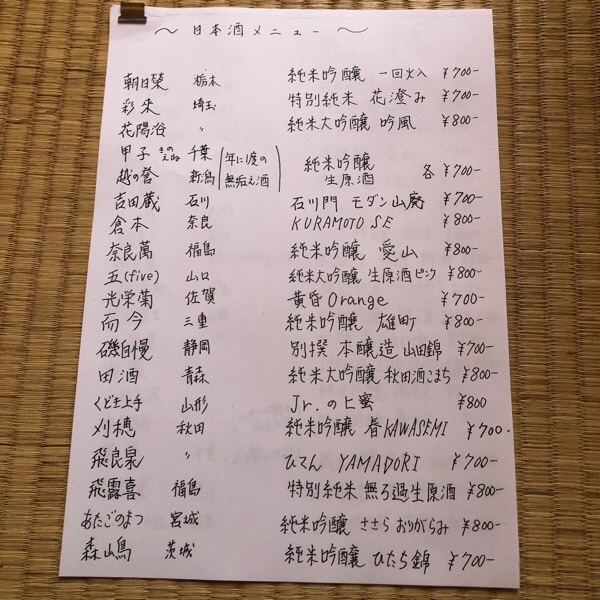 〜 日本酒メニュー 〜
朝日榮 栃木 純米吟醸 一回火入 ¥700-
彩來 埼玉 特別純米 花澄み ¥700-
花陽浴 〃 純米大吟醸 吟風 ¥800-
甲子 きのえね 千葉 年に1度の 純米吟醸
越の誉 新潟 無垢え酒 生原酒 各 ¥700-
吉田蔵 石川 石川門 モダン山廃 ¥700-
倉本 奈良 KURAMOTO SE ¥800-
奈良萬 福島 純米吟醸 愛山 ¥800-
五(five) 山口 純米大吟醸 生原酒ピンク ¥800-
光栄菊 佐賀 黄昏Orange ¥700-
而今 三重 純米吟醸 雄町 ¥800-
磯自慢 静岡 別撰 本醸造 山田錦 ¥700-
田酒 青森 純米大吟醸 秋田酒こまち ¥800-
くどき上手 山形 Jr.のヒ蜜 ¥800
刈穂 秋田 純米吟醸 春KAWASEMI ¥700-
飛良泉 〃 ひてん YAMADORI ¥700-
飛露喜 福島 特別純米 無ろ過生原酒 ¥800-
あたごのまつ 宮城 純米吟醸 ささら おりがらみ ¥800-
森嶋 茨城 純米吟醸 ひたち錦 ¥700-